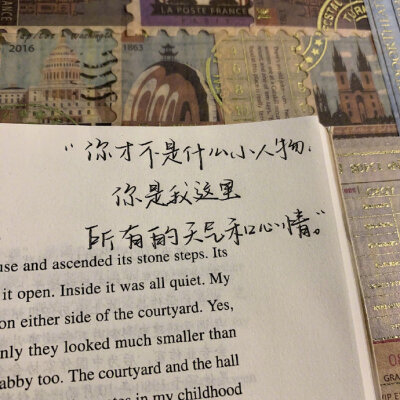 2016
1863
LA POSTE FRANCE
“你才不是什么小人物，
你是我这里
所有的天气和心情。”
use and ascended its stone steps. Its
it open. Inside it was all quiet. My
on either side of the courtyard. Yes,
nly they looked much smaller than
abby too. The courtyard and the hall
in my childhood